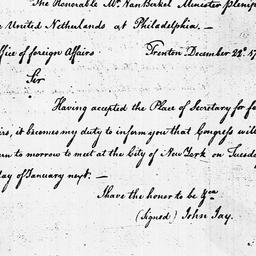 The Honorable Mr. Van Berkel Minister Plenip
e United Netherlands at Philadelphia. —
ffice of foreign Affairs Trenton December 22d. 17
Sir
Having accepted the Place of Secretary for fo
irs, it becomes my duty to inform you that Congress will
rn to morrow to meet at the City of New York on Tuesda
day of January next. —
I have the honor to be &ca
(Signed) John Jay.